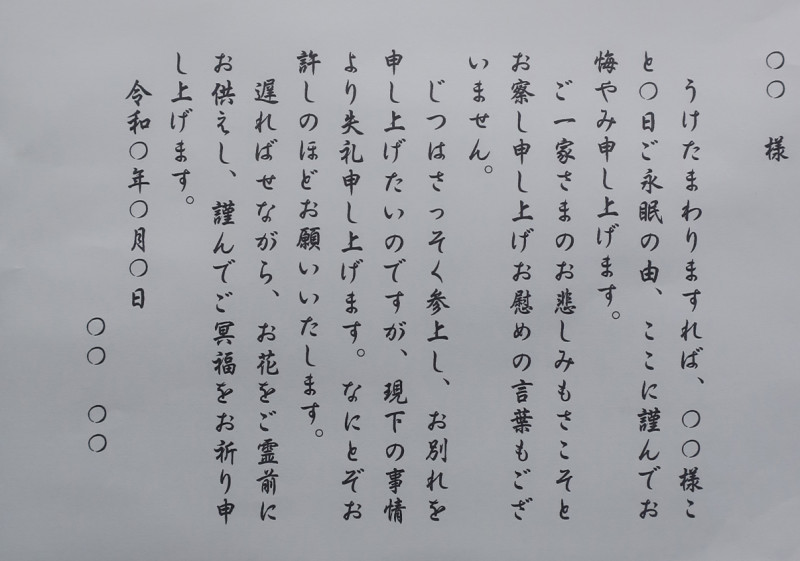 〇〇 様
うけたまわりますれば、〇〇様こ
と〇日ご永眠の由、ここに謹んでお
悔やみ申し上げます。
ご一家さまのお悲しみもさこそと
お察し申し上げお慰めの言葉もござ
いません。
じつはさっそく参上し、お別れを
申し上げたいのですが、現下の事情
より失礼申し上げます。なにとぞお
許しのほどお願いいたします。
遅ればせながら、お花をご霊前に
お供えし、謹んでご冥福をお祈り申
し上げます。
令和〇年〇月〇日
〇〇 〇〇